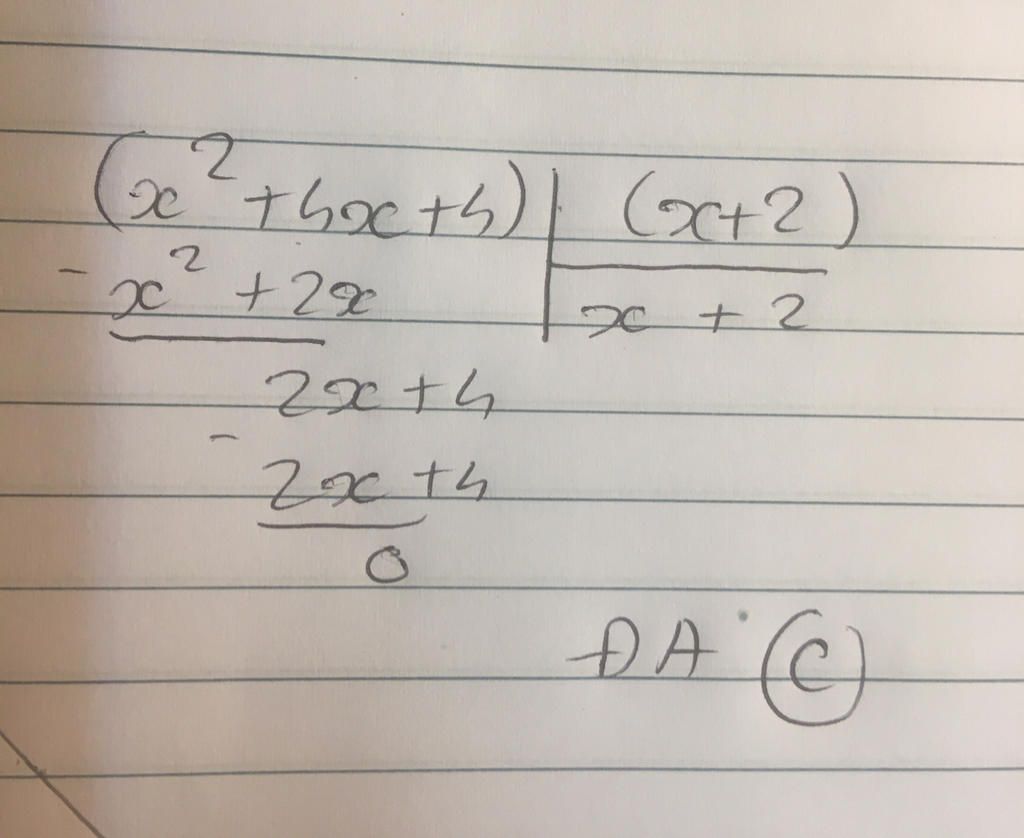 (x² + 4x + 4) | (x + 2)
- x² + 2x | x + 2
2x + 4
-
2x + 4
0
ĐA: C